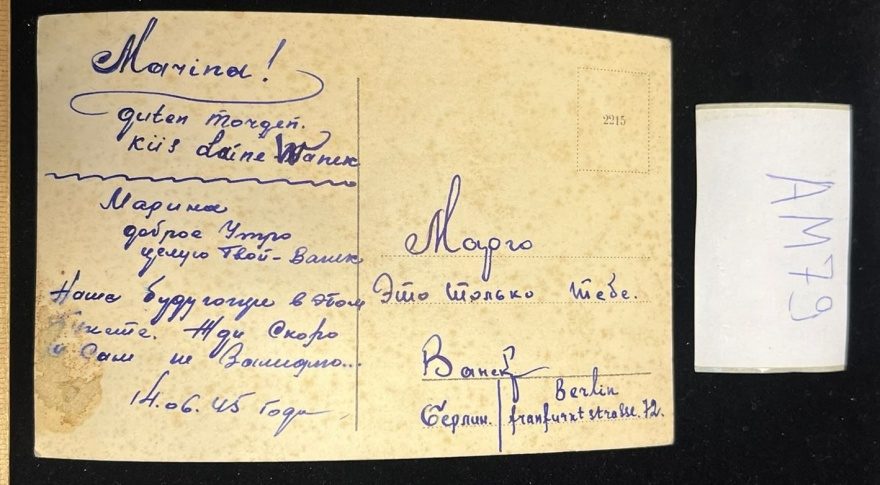 Marina!
guten morgen.
Küs daine Wanek
Марина
доброе Утро
целую Твой-Ванек
Наше будующие в этом
Жди Скоро
и Сам не
14.06.45 Года
2215
Марго
Это только тебе.
Ванек
Берлин.
Berlin
franfurkt strasse. 72.
AM79